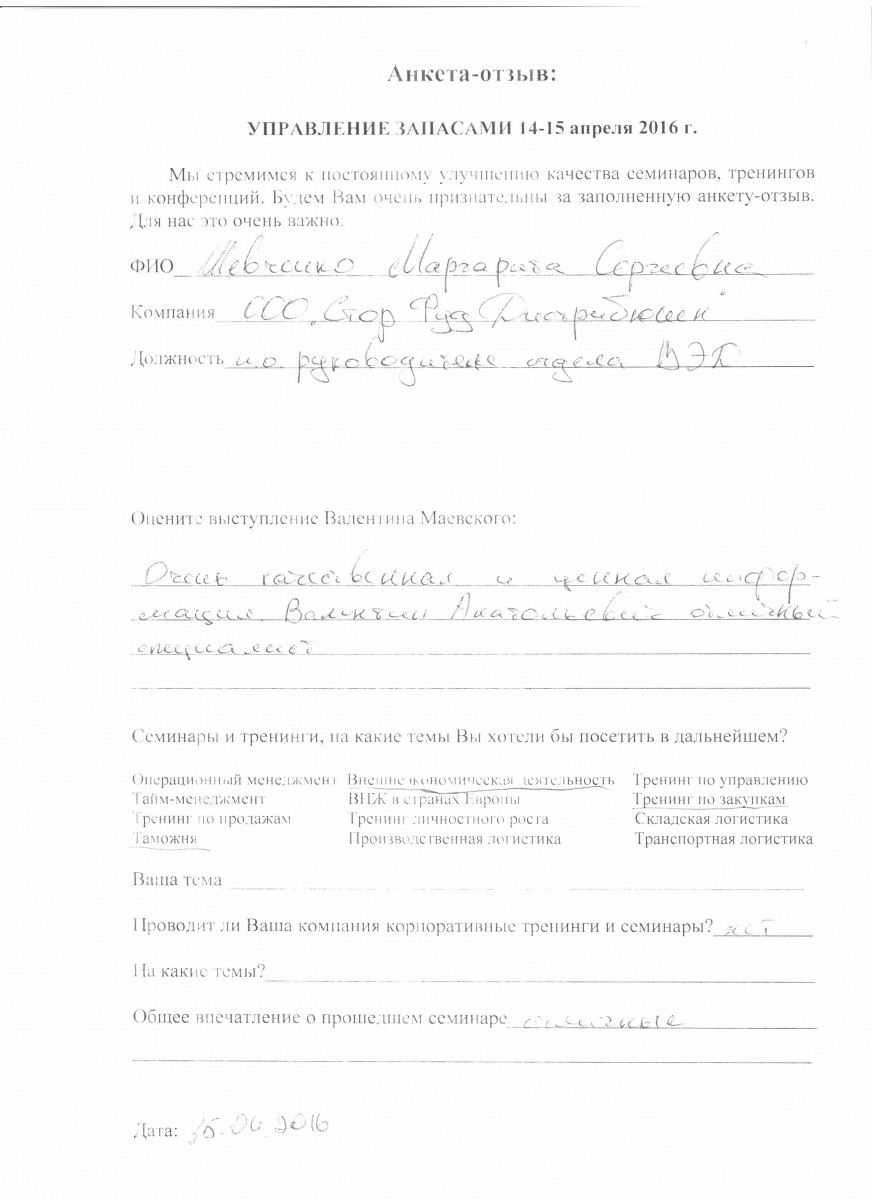 Анкета-отзыв:
УПРАВЛЕНИЕ ЗАПАСАМИ 14-15 апреля 2016 г.
Мы стремимся к постоянному улучшению качества семинаров, тренингов
и конференций. Будем Вам очень признательны за заполненную анкету-отзыв.
Для нас это очень важно.
ФИО Шевченко Маргарита Сергеевна
Компания ООО „Стор Фуд Дистрибюшен"
Должность и.о руководителя отдела ВЭД
Оцените выступление Валентина Маевского:
Очень качественная и ценная инфор-
мация. Валентин Анатольевич отличный
специалист
Семинары и тренинги, на какие темы Вы хотели бы посетить в дальнейшем?
Операционный менеджмент Внешнеэкономическая деятельность Тренинг по управлению
Тайм-менеджмент ВНЖ в странах Европы Тренинг по закупкам
Тренинг по продажам Тренинг личностного роста Складская логистика
Таможня Производственная логистика Транспортная логистика
Ваша тема
Проводит ли Ваша компания корпоративные тренинги и семинары? нет
На какие темы?
Общее впечатление о прошедшем семинаре отличные
Дата: 15.04.2016